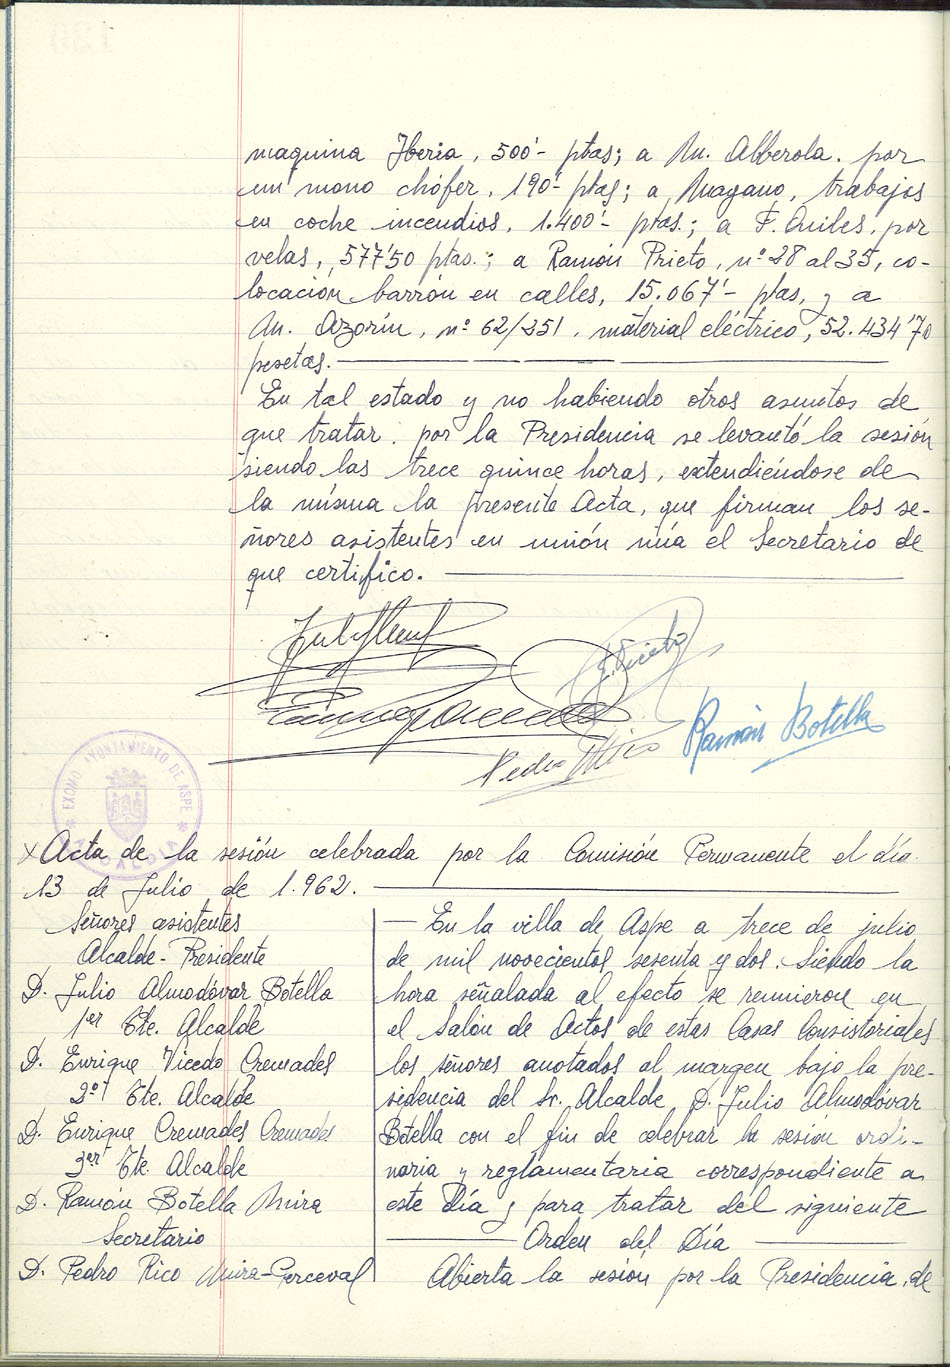 maquina Iberia, 500'- ptas; a An. Alberola. por
un mono chófer, 190'- ptas; a Magano, trabajos
en coche incendios, 1.400'- ptas.; a F. Quiles, por
velas, 577'50 ptas.; a Ramón Prieto, nº 28 al 35, co-
locación barrón en calles, 15.067'- ptas, y a
An. Azorín, nº 62/251, material eléctrico, 52.434'70
pesetas.
En tal estado y no habiendo otros asuntos de
que tratar, por la Presidencia se levantó la sesión
siendo las trece quince horas, extendiéndose de
la misma la presente Acta, que firman los se-
ñores asistentes en unión mía el Secretario de
que certifico.
E. Prieto
Ramón Botella
Pedro Rico
EXCMO AYUNTAMIENTO DE ASPE
ALCALDIA
Acta de la sesión celebrada por la Comisión Permanente el día
13 de Julio de 1.962.
Señores asistentes
Alcalde-Presidente
D. Julio Almodóvar Botella
1er Tte. Alcalde
D. Enrique Vicedo Cremades
2º Tte. Alcalde
D. Enrique Cremades Cremades
3er Tte. Alcalde
D. Ramón Botella Mira
Secretario
D. Pedro Rico Mira-Perceval
En la villa de Aspe a trece de julio
de mil novecientos sesenta y dos. Siendo la
hora señalada al efecto se reunieron en
el Salón de Actos de estas Casas Consistoriales
los señores anotados al margen bajo la pre-
sidencia del Sr. Alcalde D. Julio Almodóvar
Botella con el fin de celebrar la sesión ordi-
naria y reglamentaria correspondiente a
este Día y para tratar del siguiente
Orden del Día
Abierta la sesión por la Presidencia, de